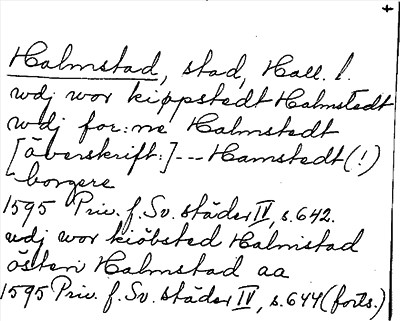 +
Halmstad, stad, Hall. l.
wdj wor kiøpstedt Halmstedt
wdj for:ne Halmstedt
[överskrift:] --- Hamstedt (!)
borgere
1595 Priv. f. Sv. städer IV, s. 642.
udj wor kiöbsted Halmstad
östen Halmstad aa
1595 Priv. f. Sv. städer IV, s. 644 (forts.)